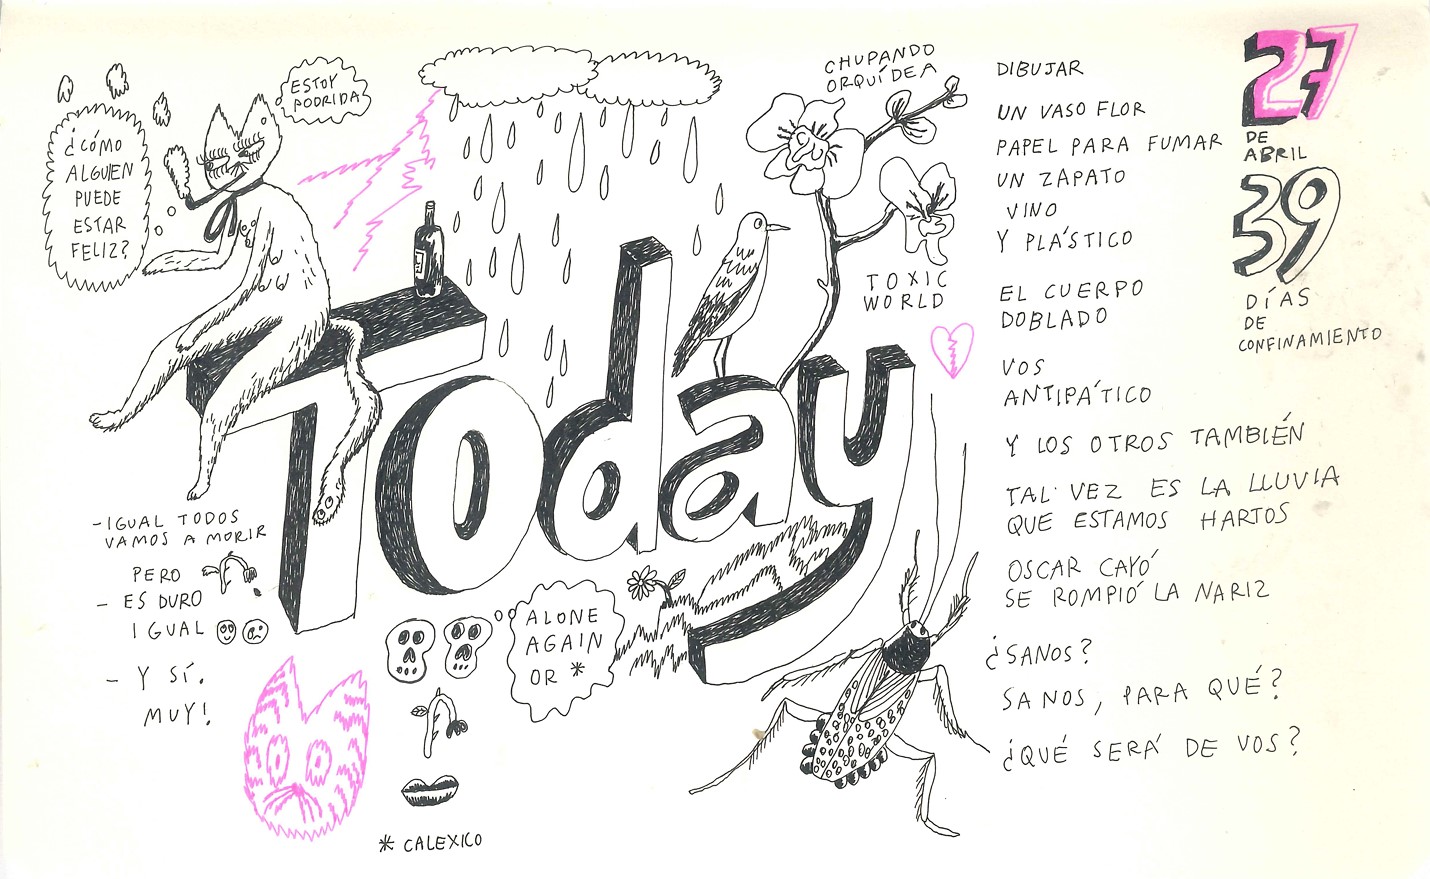 ¿CÓMO
ALGUIEN
PUEDE
ESTAR
FELIZ?
ESTOY
PODRIDA
CHUPANDO
ORQUÍDEA
TOXIC
WORLD
Today
-IGUAL TODOS
VAMOS A MORIR
PERO
- ES DURO
IGUAL
- Y SÍ.
MUY!
ALONE
AGAIN
OR *
* CALEXICO
DIBUJAR
UN VASO FLOR
PAPEL PARA FUMAR
UN ZAPATO
VINO
Y PLÁSTICO
EL CUERPO
DOBLADO
VOS
ANTIPÁTICO
Y LOS OTROS TAMBIÉN
TAL VEZ ES LA LLUVIA
QUE ESTAMOS HARTOS
OSCAR CAYÓ
SE ROMPIÓ LA NARIZ
¿SANOS?
SANOS, PARA QUÉ?
¿QUÉ SERÁ DE VOS?
27
DE
ABRIL
39
DÍAS
DE
CONFINAMIENTO